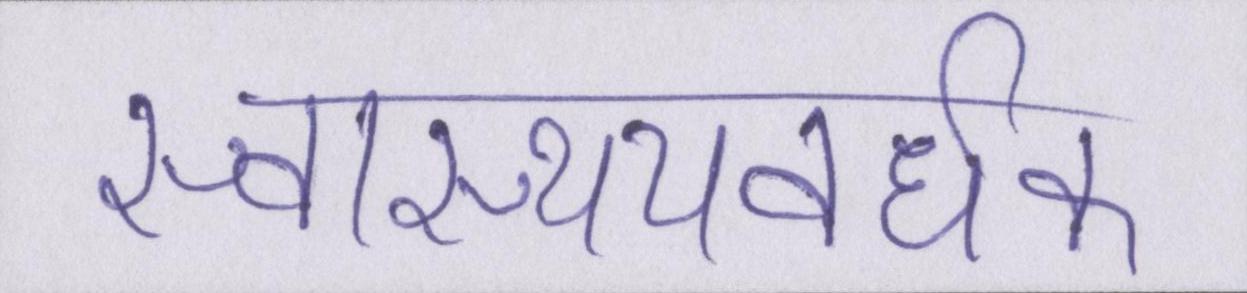 स्वास्थयवर्धक